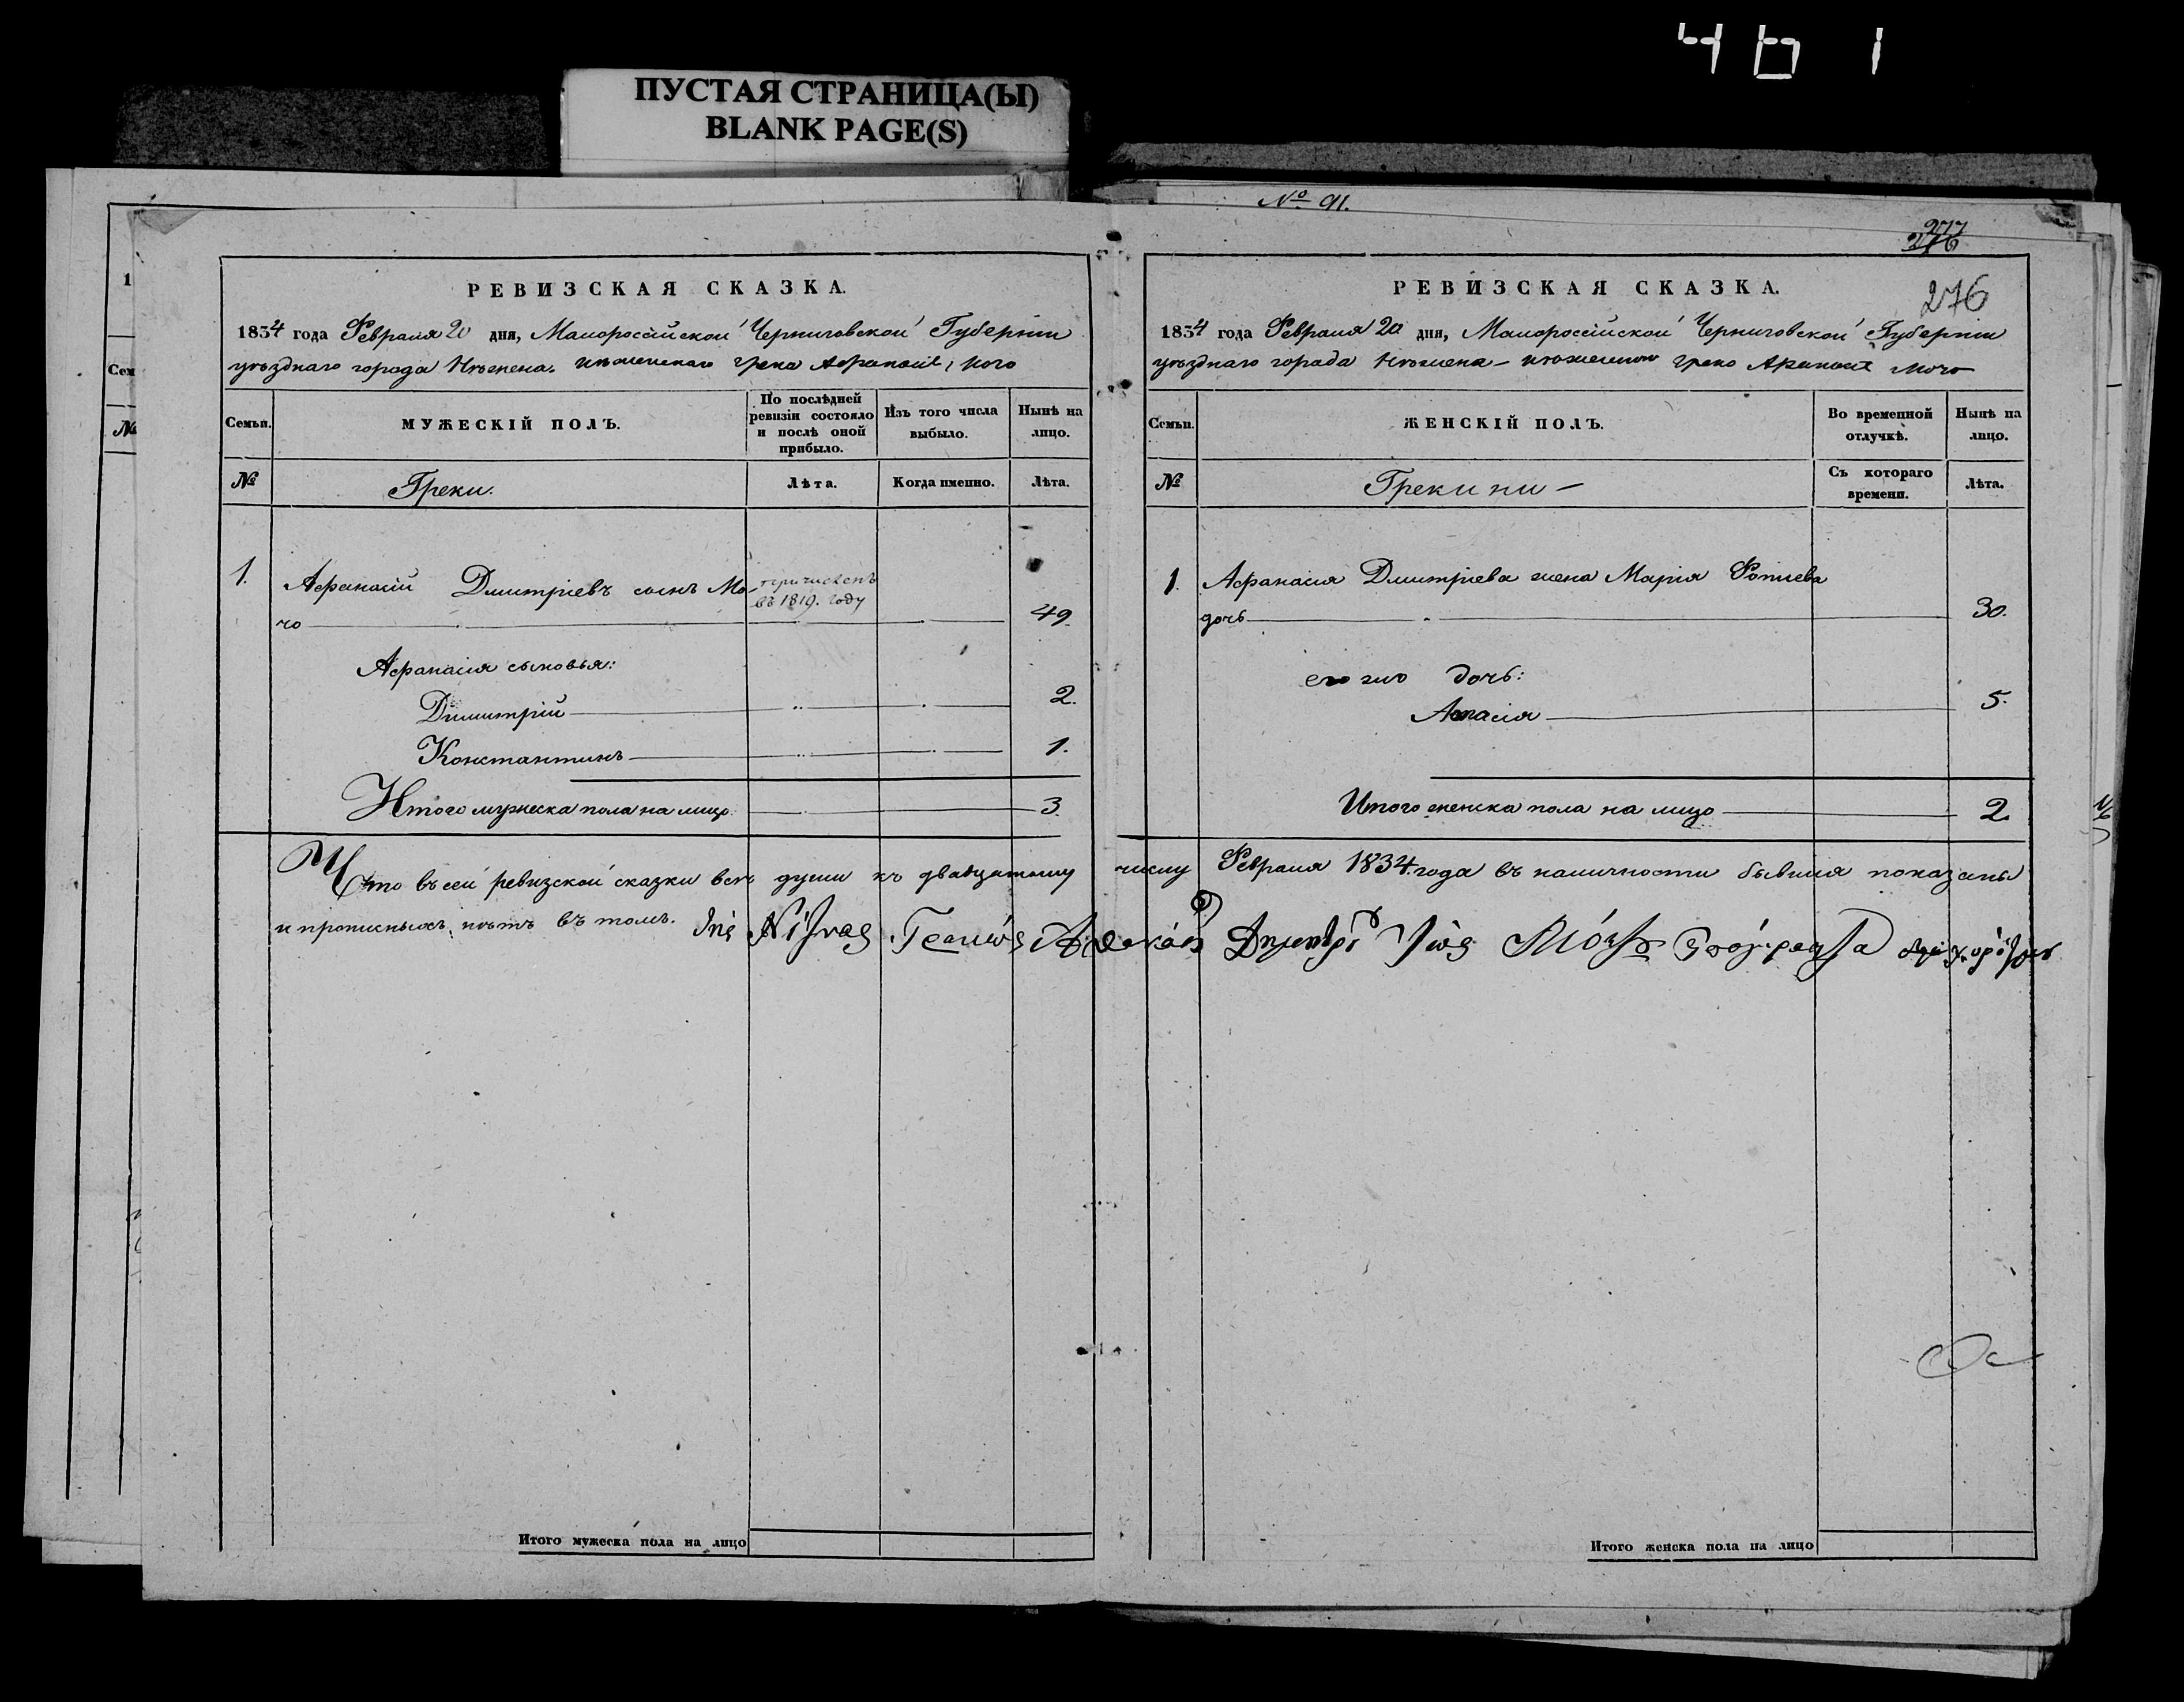 461
ПУСТАЯ СТРАНИЦА(Ы)
BLANK PAGE(S)
№ 91.
277
276
276
1
Сем
№
РЕВИЗСКАЯ СКАЗКА.
1834 года Февраля 20 дня, Малороссійской Черниговской Губерніи
уѣзднаго города Нѣжена, нѣженскаго грека Афанасія Мочо
Семьи.
МУЖЕСКІЙ ПОЛЪ.
По послѣдней ревизіи состояло и послѣ оной прибыло.
Изъ того числа выбыло.
Нынѣ на лицо.
№
Греки.
Лѣта.
Когда именно.
Лѣта.
1. Афанасій Дмитріевъ сынъ Мо-
причисленъ
въ 1819. году
чо 49.
Афанасія сыновья:
Димитрій 2.
Константинъ 1.
Итого мужеска пола на лицо 3.
РЕВИЗСКАЯ СКАЗКА.
1834 года Февраля 20 дня, Малороссійской Черниговской Губерніи
уѣзднаго города Нѣжена нѣженскаго грека Афанасія Мочо
Семьи.
ЖЕНСКІЙ ПОЛЪ.
Во временной отлучкѣ.
Нынѣ на лицо.
№
Грекини
Съ котораго времени.
Лѣта.
1. Афанасія Дмитріева жена Марія Фотиева
дочь 30.
его же дочь:
Аспасія 5.
Итого женска пола на лицо 2.
Что въ сей ревизской сказки всѣ души къ двадцатому числу Февраля 1834. года въ наличности бывшія показаны
и прописныхъ нѣтъ въ томъ.
Итого мужеска пола на лицо
Итого женска пола на лицо